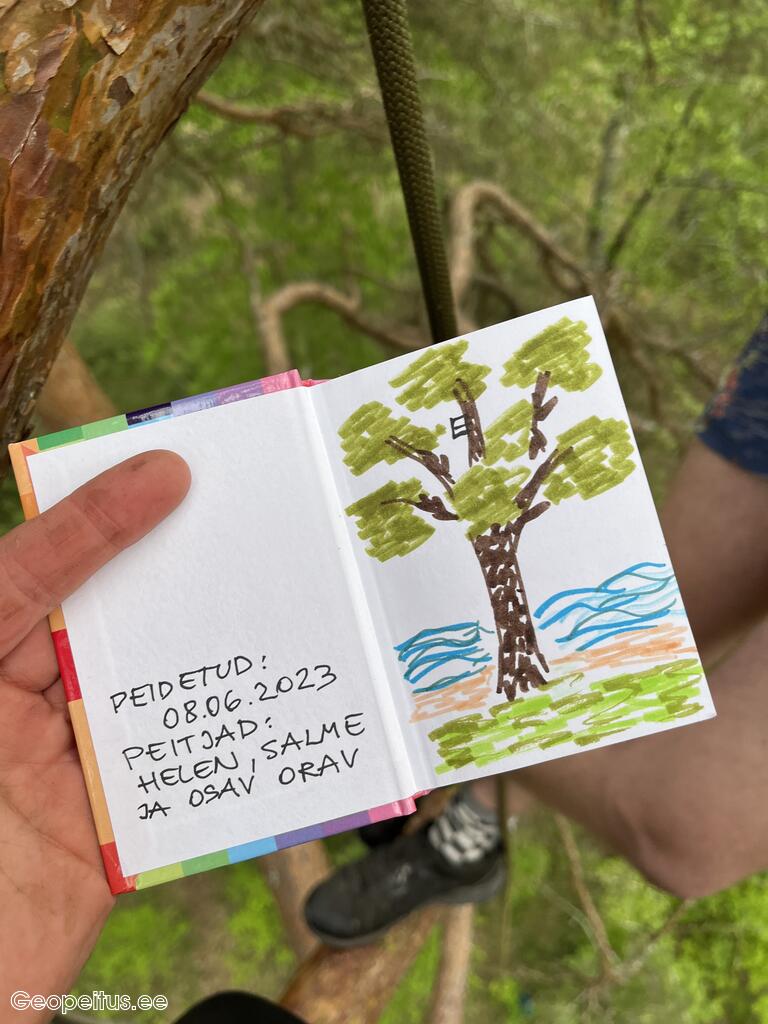 PEIDETUD:
08.06.2023
PEITJAD:
HELEN, SALME
JA OSAV ORAV
Geopeitus.ee